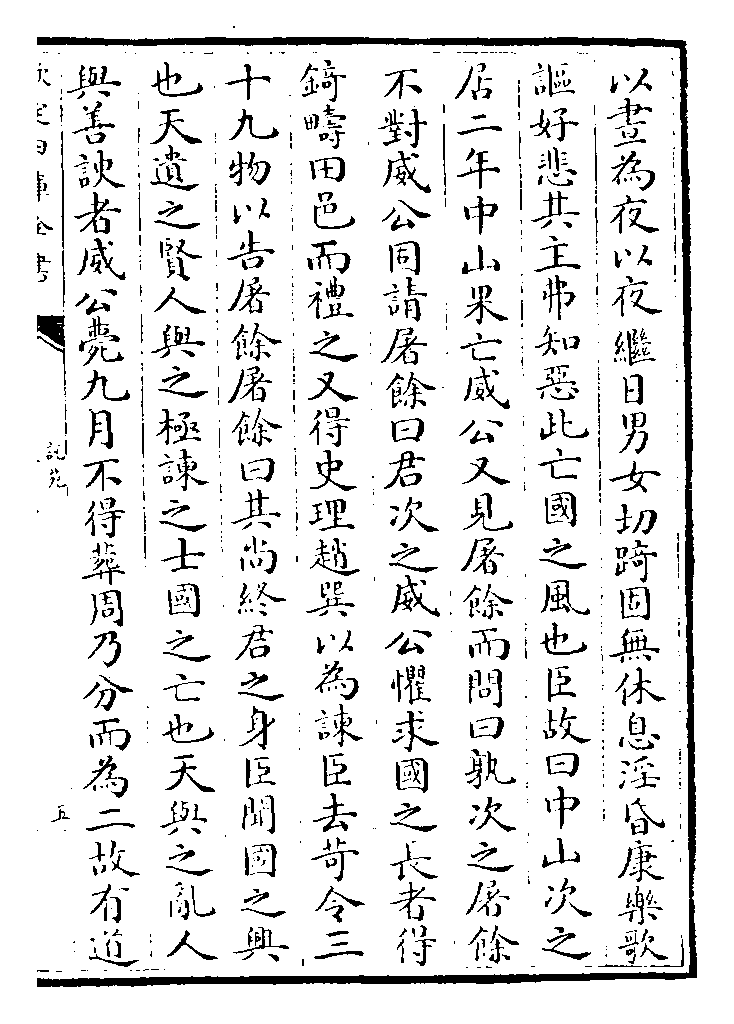 以晝為夜以夜繼日男女切踦固無休息淫昏康樂歌
謳好悲其主弗知惡此亡國之風也臣故曰中山次之
居二年中山果亡威公又見屠餘而問曰孰次之屠餘
不對威公固請屠餘曰君次之威公懼求國之長者得
錡疇田邑而禮之又得史理趙巽以為諫臣去苛令三
十九物以告屠餘屠餘曰其尚終君之身臣聞國之興
也天遺之賢人與之極諫之士國之亡也天與之亂人
與善諛者威公薨九月不得葬周乃分而為二故有道
欽定四庫全書
說苑
五